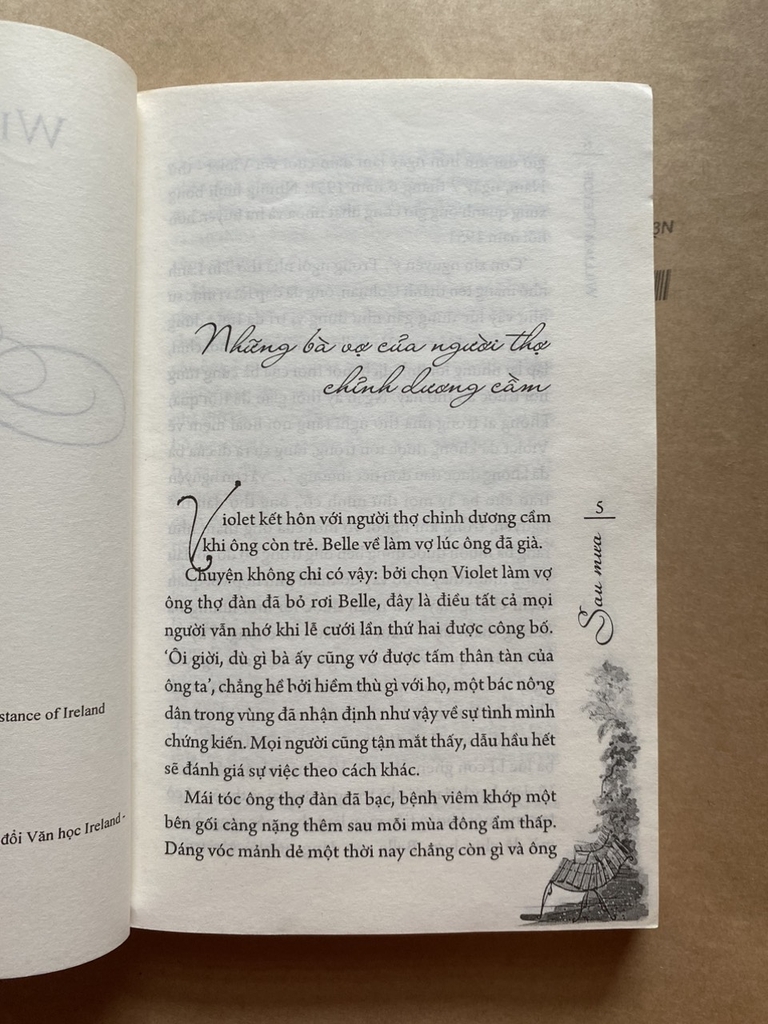 stance of Ireland
đổi Văn học Ireland.
Những bà vợ của người thợ
chỉnh dương cầm
Violet kết hôn với người thợ chỉnh dương cầm
khi ông còn trẻ. Belle về làm vợ lúc ông đã già.
Chuyện không chỉ có vậy: bởi chọn Violet làm vợ
ông thợ đàn đã bỏ rơi Belle, đây là điều tất cả mọi
người vẫn nhớ khi lễ cưới lần thứ hai được công bố.
‘Ôi giời, dù gì bà ấy cũng vớ được tấm thân tàn của
ông ta’, chẳng hề bởi hiềm thù gì với họ, một bác nông
dân trong vùng đã nhận định như vậy về sự tình mình
chứng kiến. Mọi người cũng tận mắt thấy, dẫu hầu hết
sẽ đánh giá sự việc theo cách khác.
Mái tóc ông thợ đàn đã bạc, bệnh viêm khớp một
bên gối càng nặng thêm sau mỗi mùa đông ẩm thấp.
Dáng vóc mảnh dẻ một thời nay chẳng còn gì và ông
5
Sau mưa